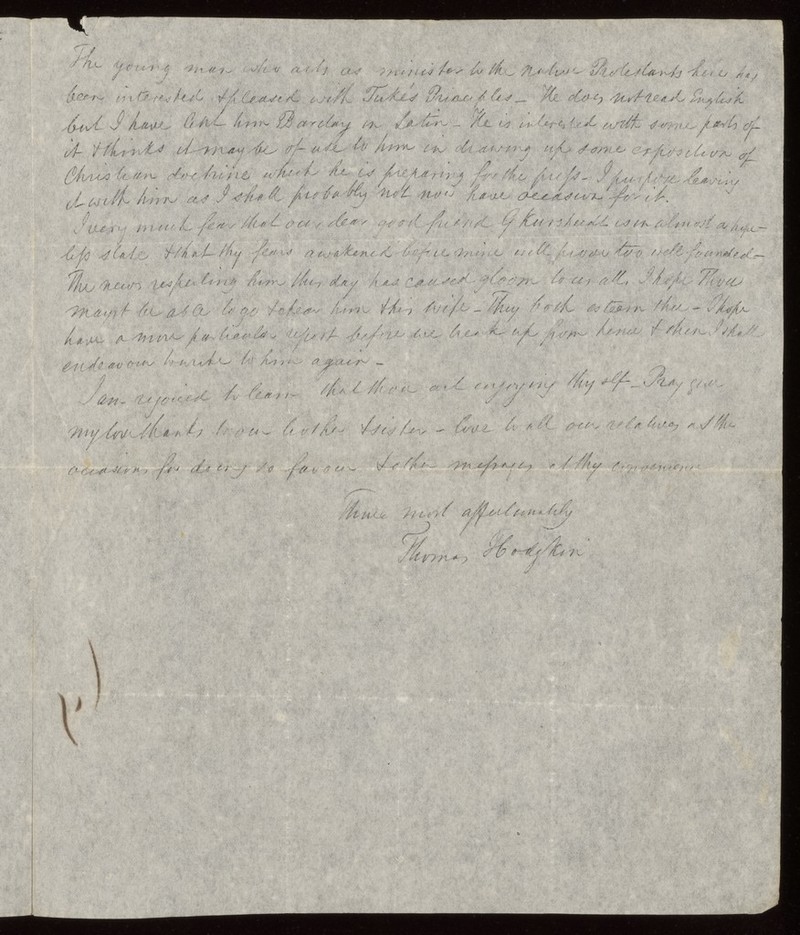 The young man who acts as minister to the native Protestants here has
been interested & pleased with Tuke's Principles – He does not read English
but I have lent him Barclay in Latin – He is interested with some parts of
it & thinks it may be of use to him in drawing up some exposition of
Christian doctrine which he is preparing for the press – I purpose leaving
it with him as I shall probably not now have occasion for it.
I very much fear that our dear good friend G Kursheedt is in almost a hope-
less state & that thy fears awakened before mine will prove too well founded –
The news respecting him this day has caused gloom to us all, I hope Thou
mayst be able to go & cheer him & his wife – They both esteem thee – I hope
have a more particular report before we break up from hence & then I shall
endeavour to write to him again –
I am rejoiced to learn that thou art enjoying thyself – Pray give
my love thanks to our brother & sister – love to all our relatives as the
occasions for doing so favour & other messages at thy convenience
Thine most affectionately
Thomas Hodgkin